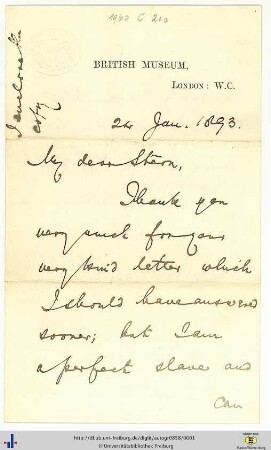 1967 C 210
I enclose the
copy
BRITISH MUSEUM,
LONDON: W.C.
24 Jan. 1893.
My dear Stern,
Thank you
very much for your
very kind letter which
I should have answered
sooner; but I am
a perfect slave and
can
http://dl.ub.uni-freiburg.de/diglit/autogr0858/0001
© Universitätsbibliothek Freiburg